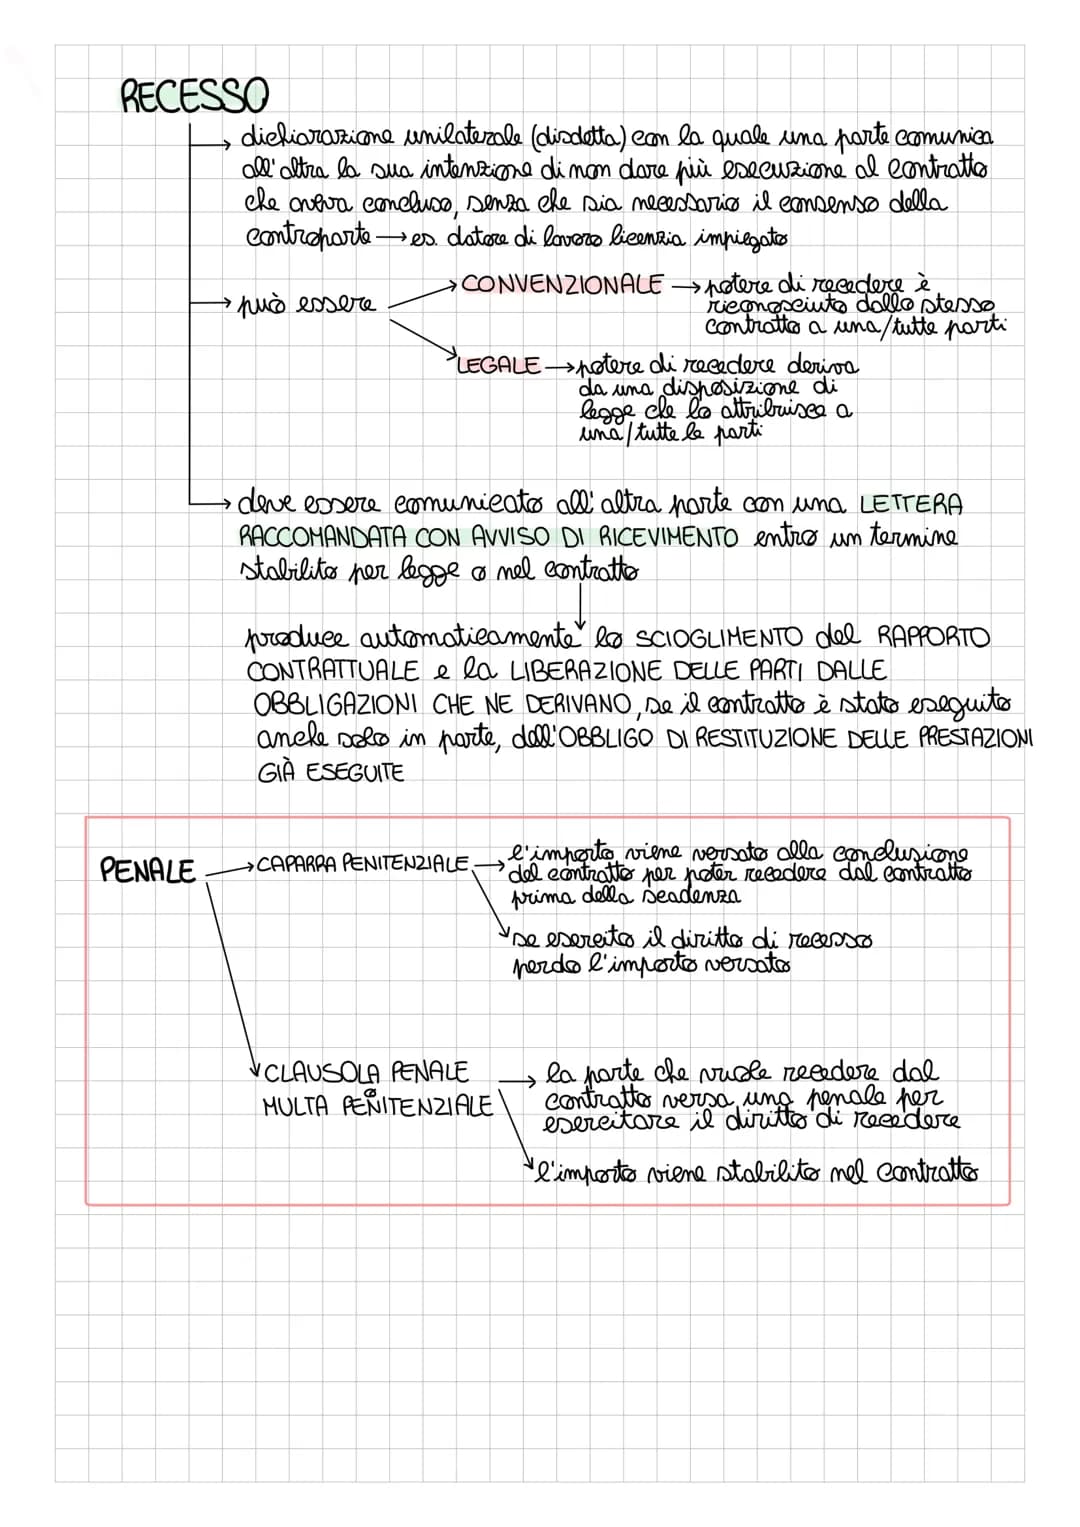 RECESSO
dichiarazione unilaterale (disdetta) con la quale una parte comunica
all'altra la sua intenzione di non dare più esecuzione al contratto
che aveva concluso, senza che sia necessario il consenso della
controparte → es. datore di lavoro licenzia impiegato
può essere
CONVENZIONALE → potere di recedere è
riconosciuto dallo stesso
contratto a una/tutte parti
LEGALE → potere di recedere deriva
da una disposizione di
legge che lo attribuisce a
una/tutte le parti
deve essere comunicato all'altra parte con una LETTERA
RACCOMANDATA CON AVVISO DI RICEVIMENTO entro un termine
stabilito per legge o nel contratto
produce automaticamente lo SCIOGLIMENTO del RAPPORTO
CONTRATTUALE e la LIBERAZIONE DELLE PARTI DALLE
OBBLIGAZIONI CHE NE DERIVANO, se il contratto è stato eseguito
anche solo in parte, dell'OBBLIGO DI RESTITUZIONE DELLE PRESTAZIONI
GIÀ ESEGUITE
PENALE → CAPARRA PENITENZIALE → l'importo viene versato alla conclusione
del contratto per poter recedere dal contratto
prima della scadenza
se esercito il diritto di recesso
perdo l'importo versato
CLAUSOLA PENALE → la parte che vuole recedere dal
o
MULTA PENITENZIALE contratto versa una penale per
esercitare il diritto di recedere
l'importo viene stabilito nel contratto